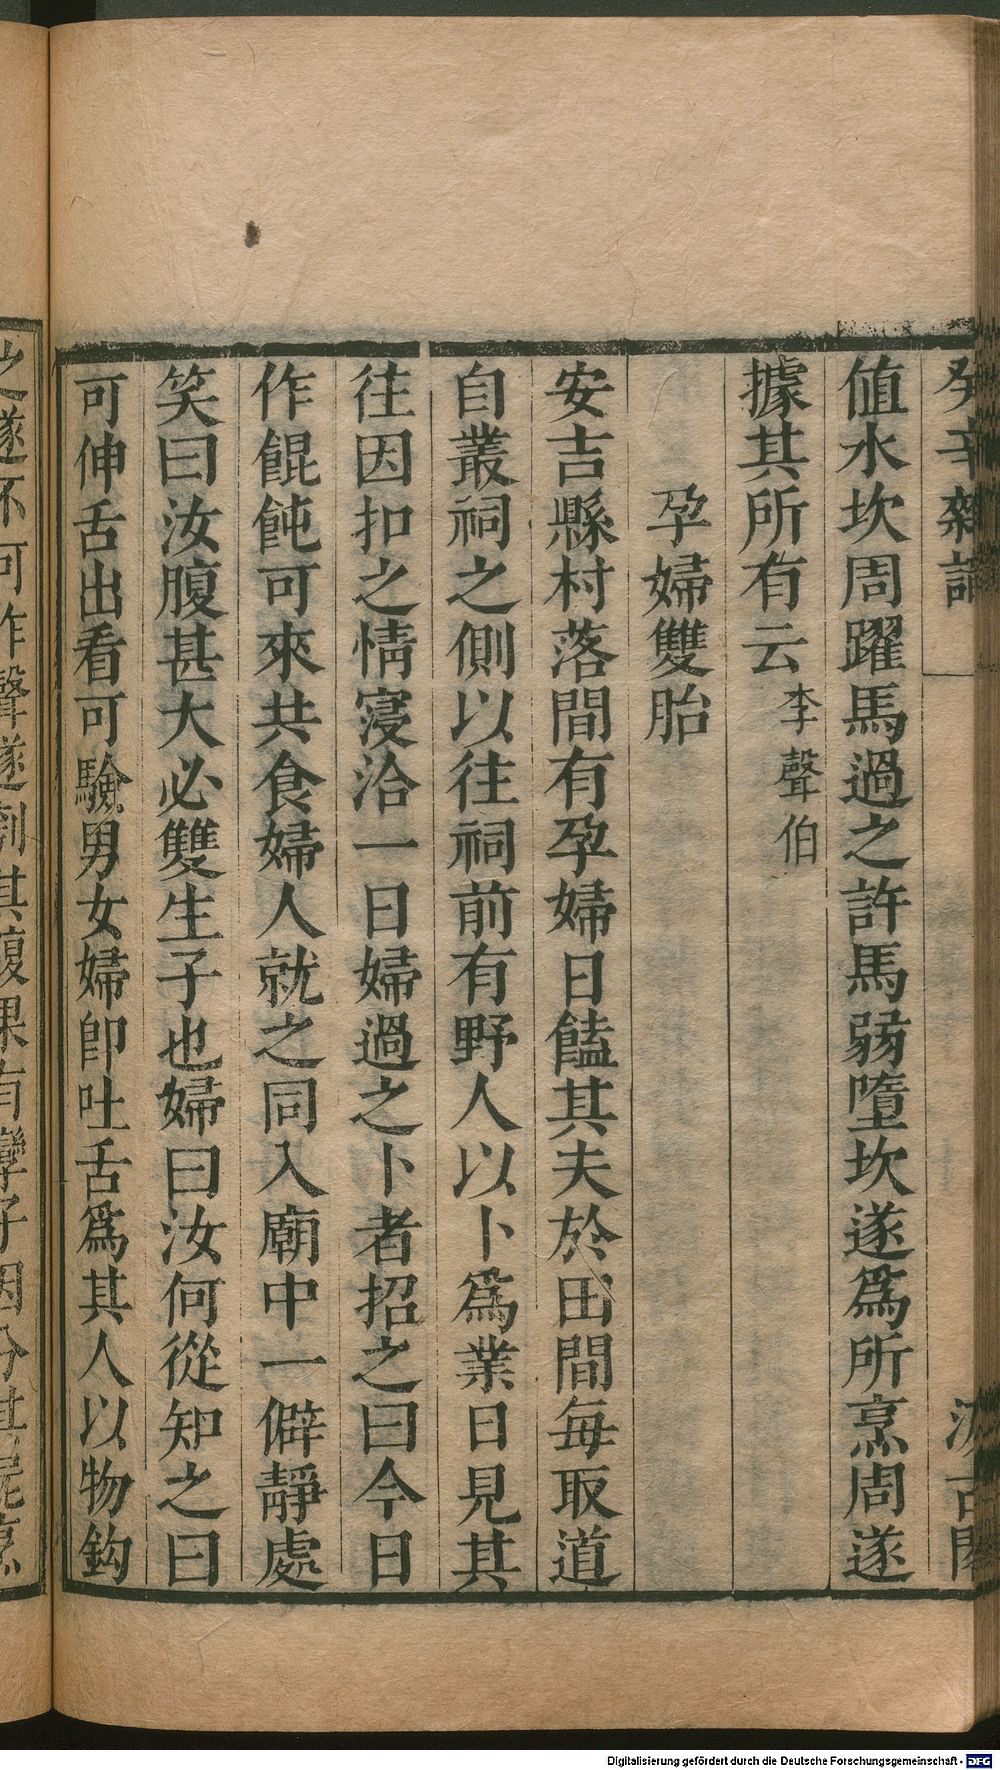 癸辛雜識
汲古閣
値水坎周躍馬過之許馬弱墮坎遂爲所烹周遂
據其所有云李聲伯
孕婦雙胎
安吉縣村落間有孕婦日饁其夫於田間每取道
自叢祠之側以往祠前有野人以卜爲業日見其
往因扣之情寖洽一日婦過之卜者招之曰今日
作餛飩可來共食婦人就之同入廟中一僻靜處
笑曰汝腹甚大必雙生子也婦曰汝何從知之曰
可伸舌出看可驗男女婦卽吐舌爲其人以物鈎
之遂不可作聲遂刳其腹果有孿子因分其屍烹
Digitalisierung gefördert durch die Deutsche Forschungsgemeinschaft - DFG